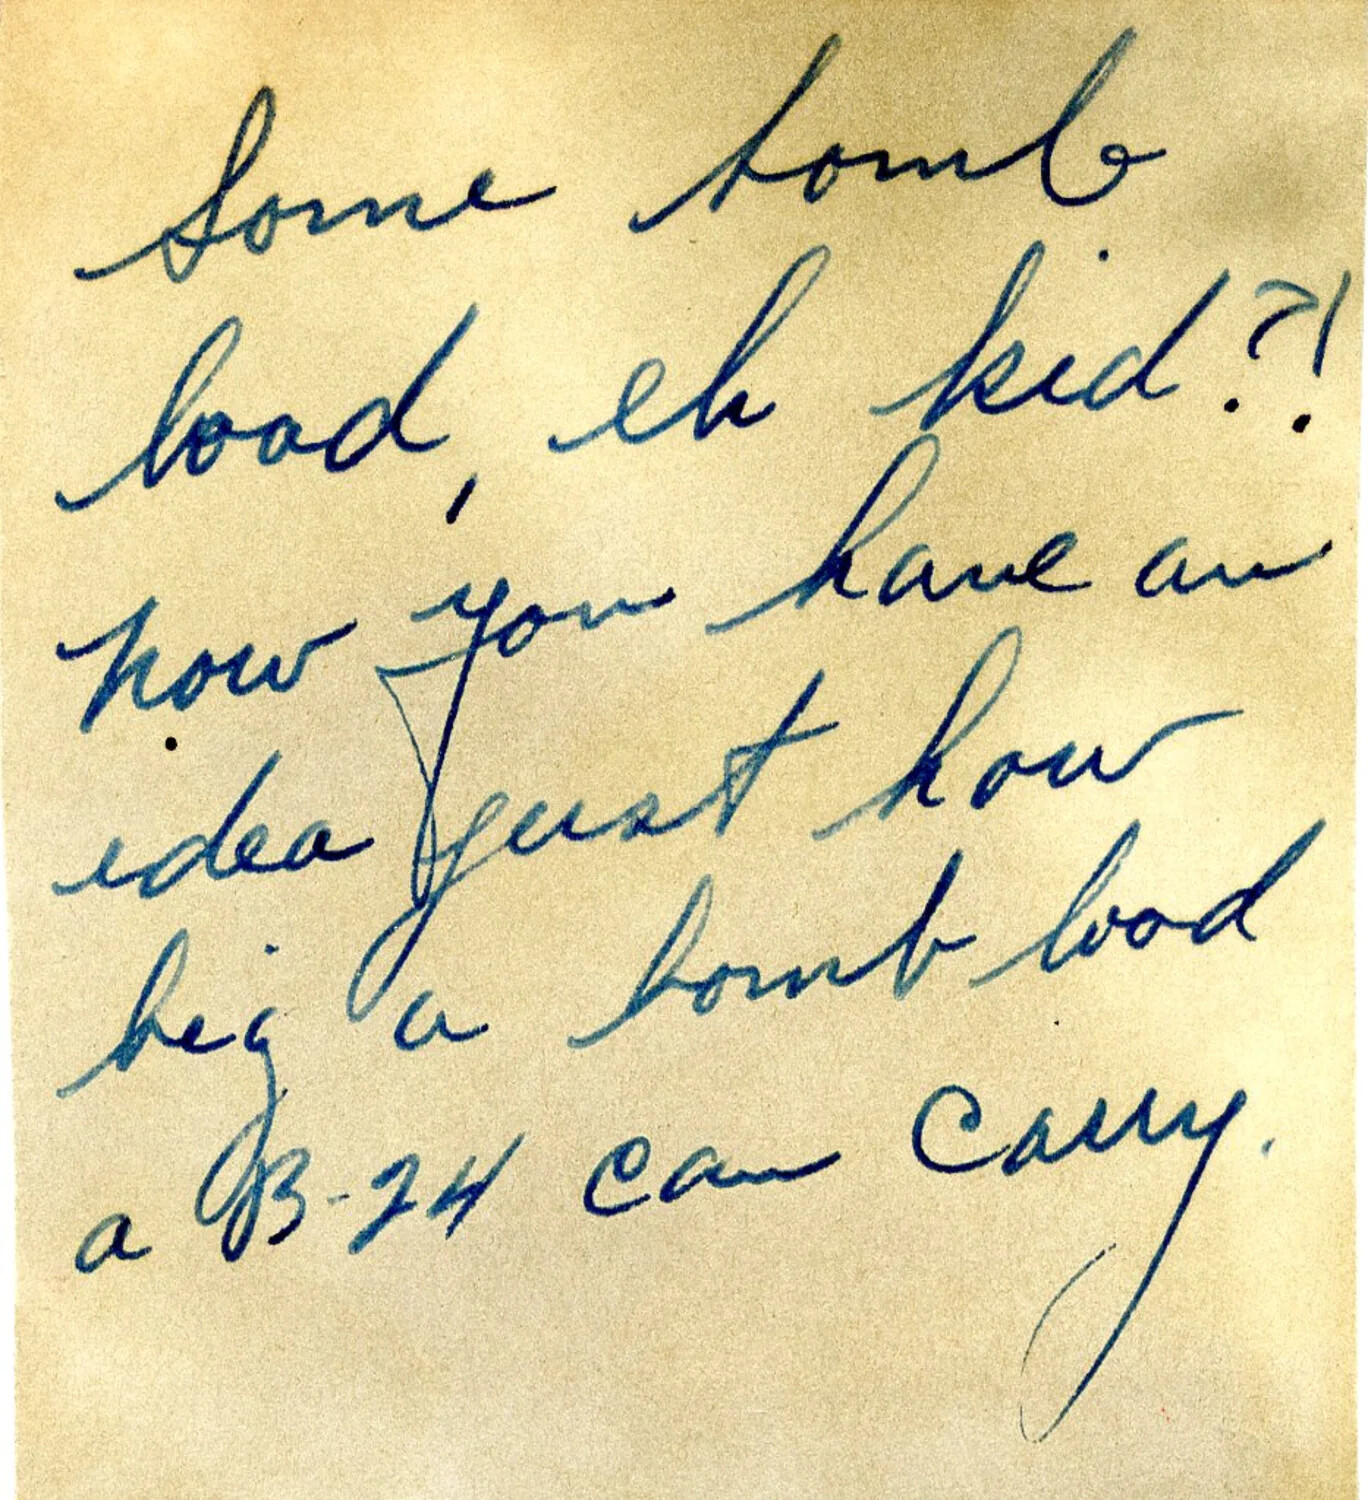 Some bomb
load, eh kid?!
Now you have an
idea just how
big a bomb load
a B-24 can carry.